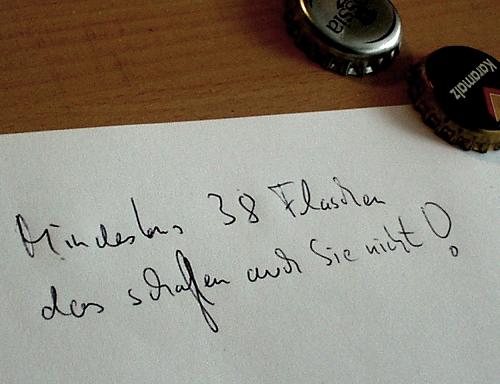 Karamalz
Mindestens 38 Flaschen
das schaffen auch Sie nicht!